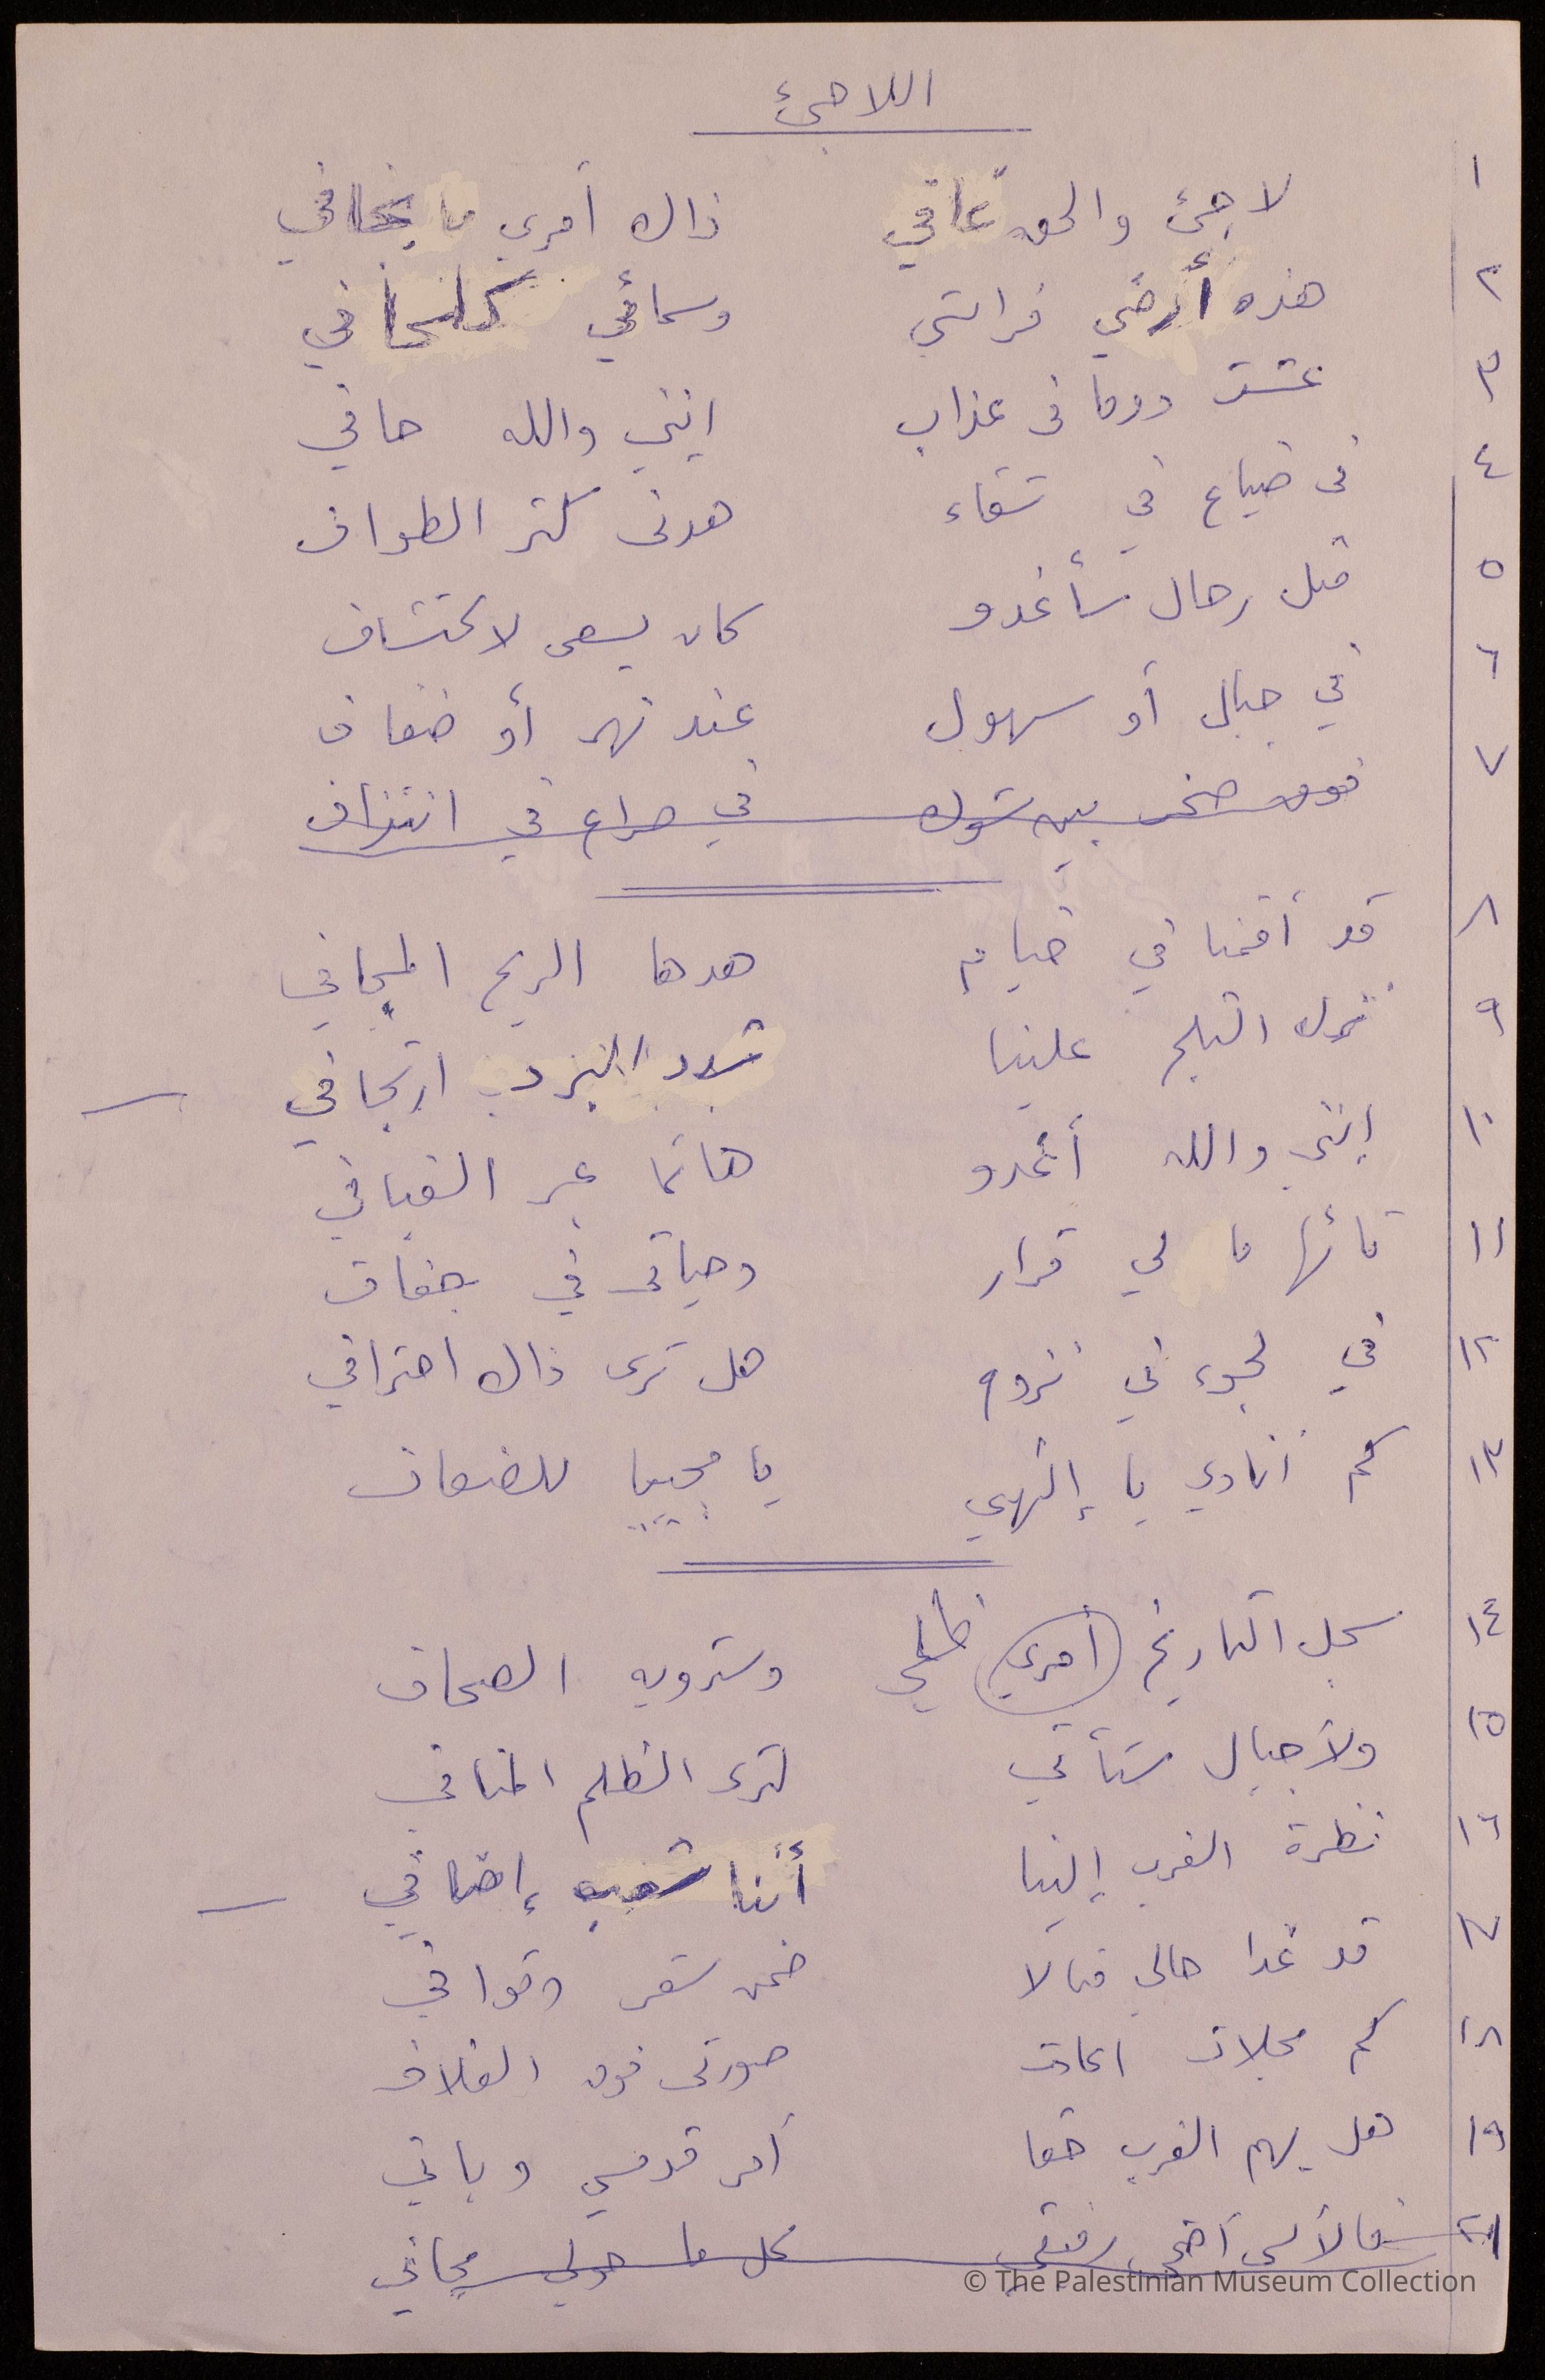 اللاجئ
١ لاجئ والحق عافي ذاك أمري ما بخافي
٢ هذه أرضي فراشي وسمائي كلحافي
٣ عشت دوما في عذاب إنني والله حافي
٤ في ضياع في شقاء هدني كثر الطواف
٥ مثل رحال سأغدو كان يسعى لاكتشاف
٦ في جبال أو سهول عند نهر أو ضفاف
٧ فوق صخر بين شوك في صراع في انتزاف
٨ قد أقمنا في خيام هدها الريح المجافي
٩ نزل الثلج علينا البرد ارتجافي
١٠ إنني والله أغدو هائما عبر الفيافي
١١ تائها ما لي قرار وحياتي في جفاف
١٢ في لجوء في نزوح هل ترى ذاك احترافي
١٣ كم أنادي يا إلهي يا مجيبا للضعاف
١٤ سجل التاريخ أمري ظلمي وسترويه الصحاف
١٥ ولأجيال ستأتي لترى الظلم المنافي
١٦ نظرة الغرب إلينا أننا شعب إضافي
١٧ قد غدا حالي مثالا ضمن شعر وقوافي
١٨ كم مجلات أعادت صورتي فوق الغلاف
١٩ هل يهم الغرب حقا أمر قدسي ويافي
فالأسى أضحى رفيقي كل ما حولي مجافي
© The Palestinian Museum Collection